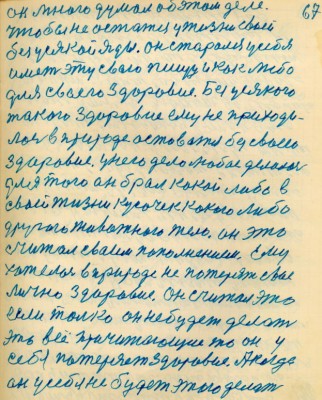 67
он много думал об этом деле.
Чтобы не остатся у жизни своей
без усякой яды. он старался у себя
имет эту свою пищу и как либо
для своего здоровие. Без усякого
такого здоровие ему не приходи-
лося в природе оставатся без своего
здаровие. у него дело любое делалося
для того он брал какой либо в
своей жизни кусочек какого либо
другого живатного тело. он это
считал своим пополнением. Ему
хотелося в природе не потерят свое
лично здаровие. Он считал это
если только он не будет делат
это всё причитающие то он у
себя потеряет здоровие. А когда
он у себя не будет этого делат